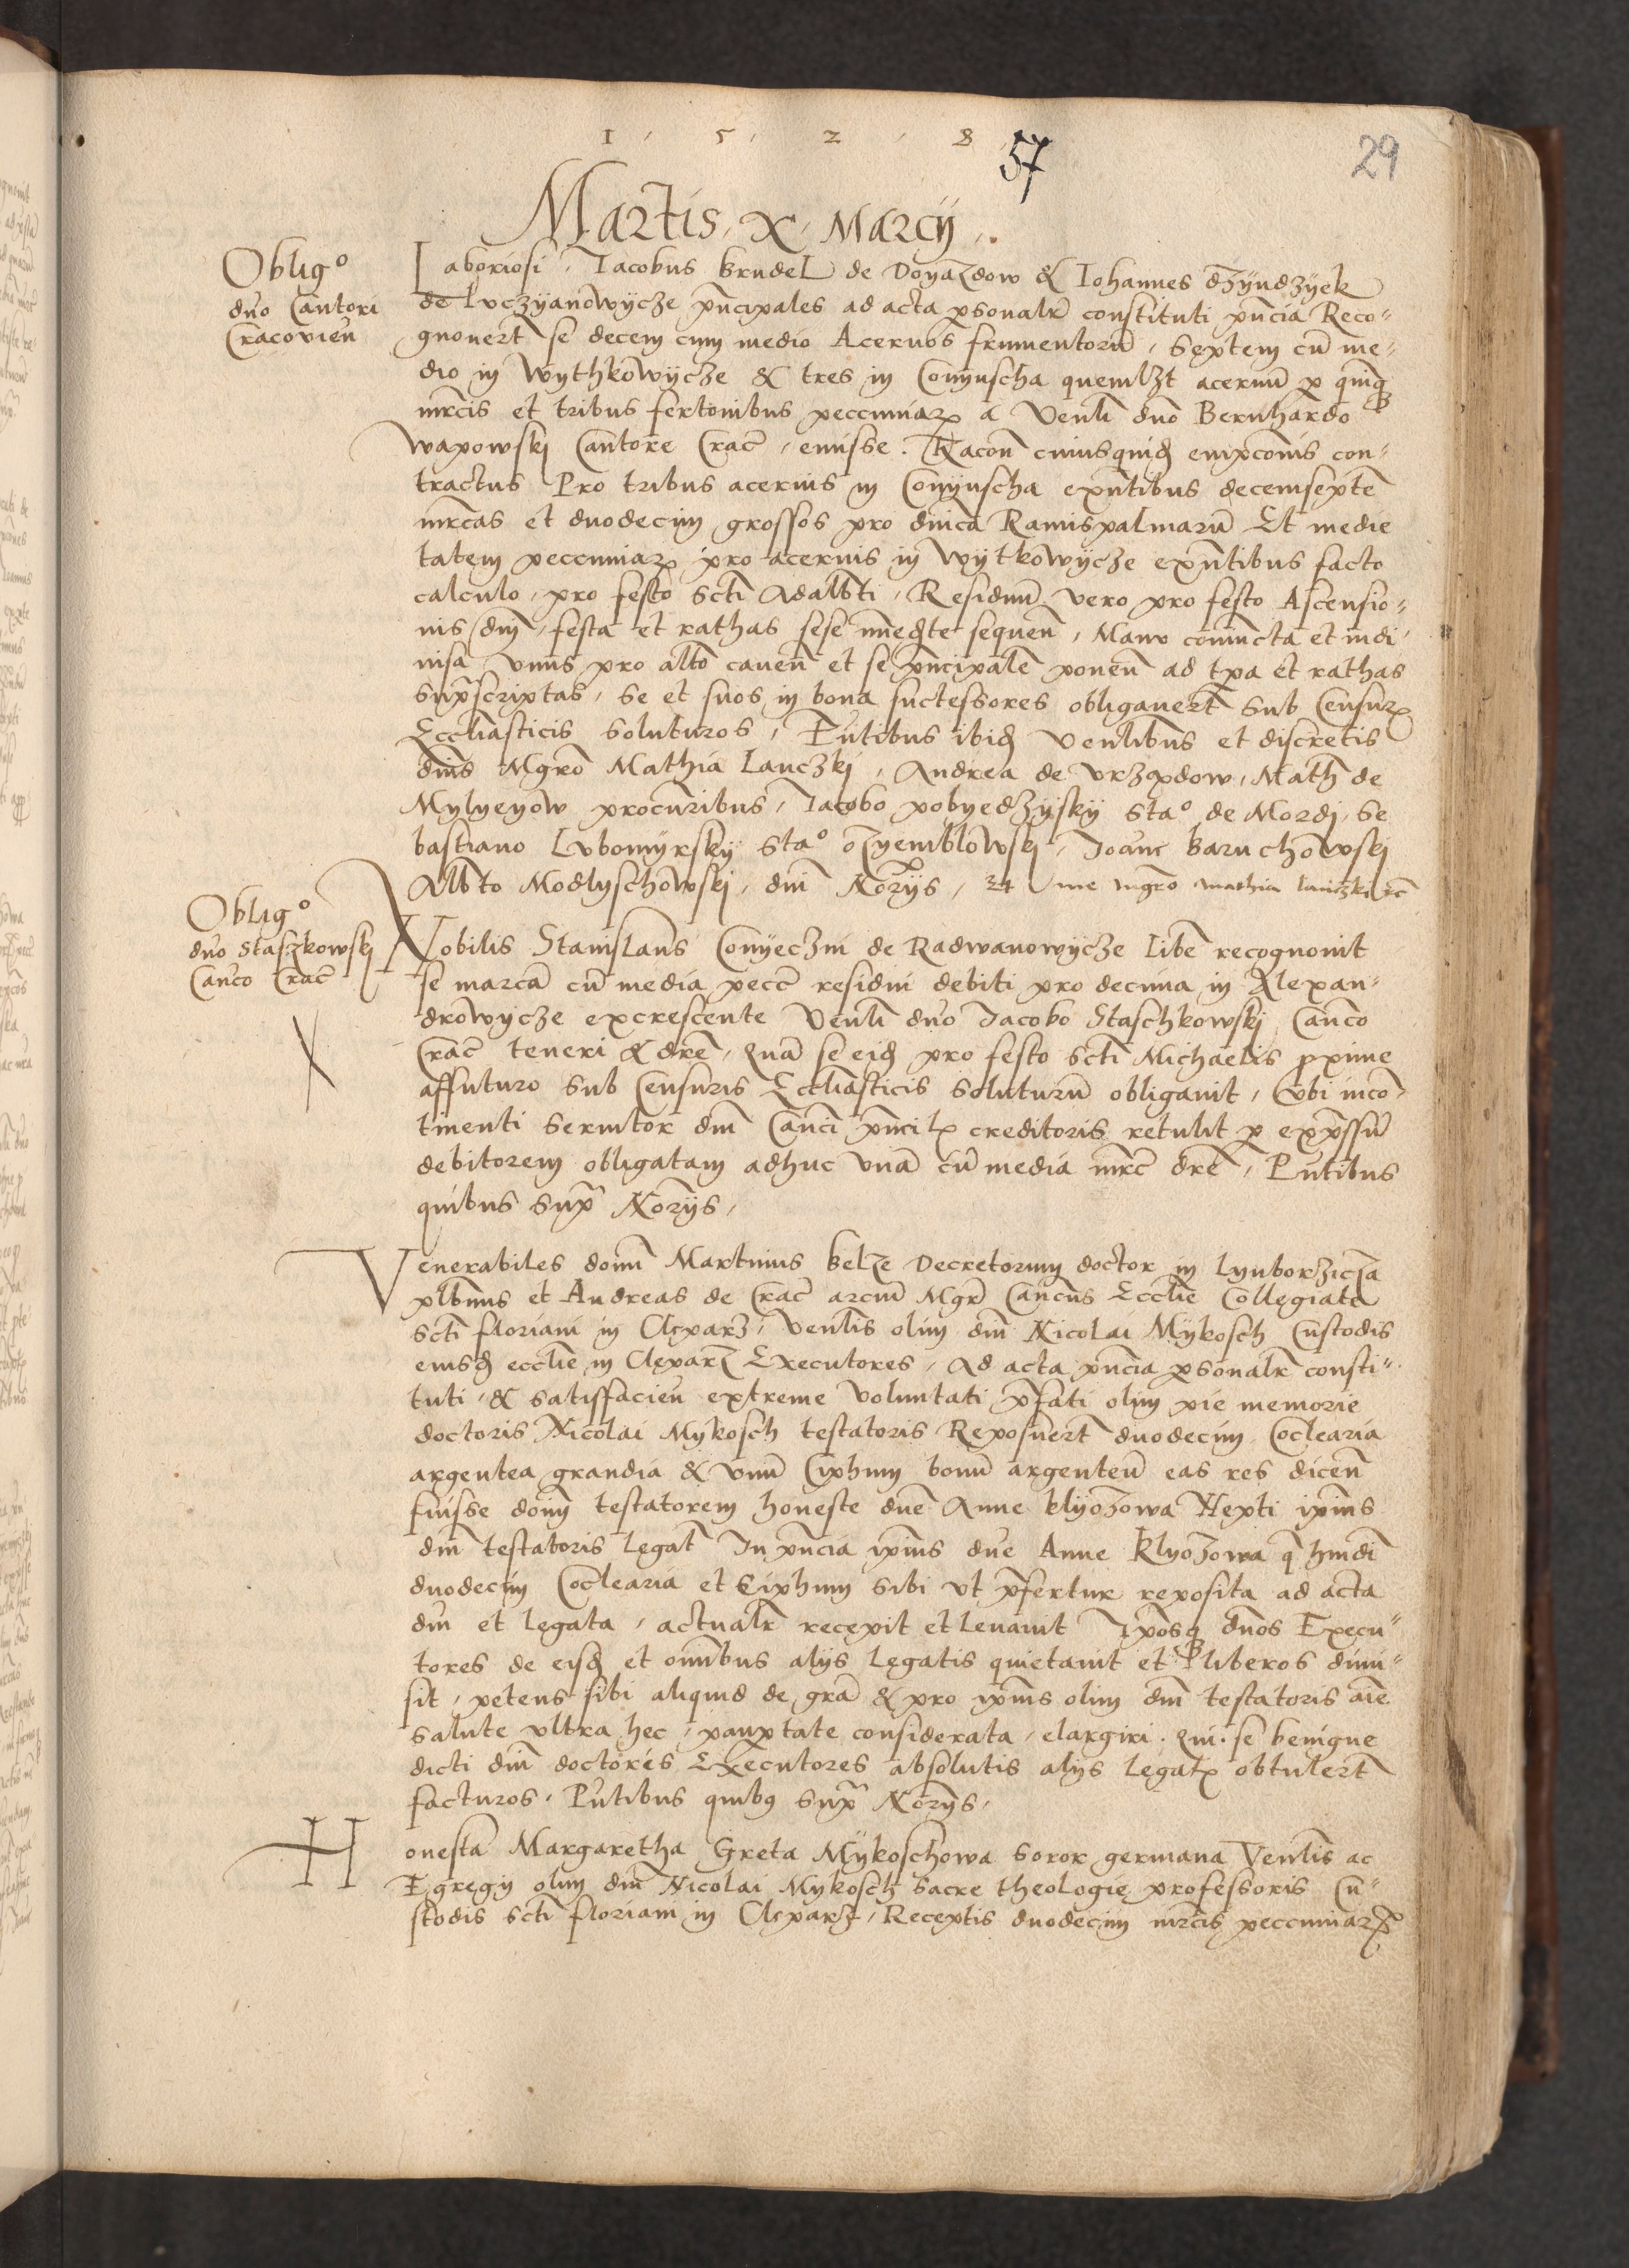 1 5 2 8
57
29
Martis, X, Marcij
Obligo
dno Cantori
Cracovien
Laboriosi, Iacobus Brudel de Doyazdow & Iohannes dzyndzyek
de Luczyanowycze pncipales ad acta psonalr constituti pncia Reco"
gnouert se decem cum medio Aceruos frumentoru, Septem cu me"
dio in Wythkowycze & tres in Conyuscha quemlzt aceruu p qnq
mrcis et tribus fertonibus peccuniar a Venli dno Bernhardo
Wapowskj Cantore Crac, emisse. Racon cuiusquid empconis con"
tractus Pro tribus aceruis in Conyuscha exntibus decemsepte
mrcas et duodecim grossos pro dnica Ramispalmaru Et medie
tatem peccuniar pro aceruis in Wytkowycze exntibus facto
calculo, pro festo Scti Adalbti, Residuu vero pro festo Ascensio"
nis dni, festa et rathas sese immedte sequen, Manu coniuncta et indi"
uisa vnus pro alto cauen et se pncipale ponen ad tpa et rathas
suprscriptas, se et suos in bona successores obligauert sub Censur
Eccliasticis soluturos, Pntibus ibid Venlibus et discretis
dnis Mgro Mathia Lanczkj, Andrea de Vrzedow, Math de
Mylyeyow procuribus, Iacobo pobyedzyskÿ Stao de Mordj, Se
bastiano Lubomyrskÿ Stao ozyemblowskj, Ioanne Baruchowskj
Albto Modlyschowskj, dni Norijs, et me mgro mathia lanczkj
Obligo
dno Staszkowskj
Canco Crac
Nobilis Stanislaus Conyeczni de Radwanowycze libe recognouit
se marca cu media pecc residui debiti pro decima in Alexan"
drowycze excrescente Venli dno Iacobo Staschkowskj Canco
Crac teneri & dre, Qua se eid pro festo Scti Michaelis pxime
affuturo sub Censuris Eccliasticis soluturu obligauit, Vbi inco"
tinenti seruitor dni Canci pncil creditoris retulit p expssu
debitorem obligatam adhuc vna cu media mrc dre, Pntibus
quibus supr Norijs,
Venerabiles domi Martinus Belze Decretorum doctor in Lynborzicza
plbnus et Andreas de Crac arciu Mgr Cancus Ecclie Collegiate
Scti floriani in Clepарz, Venlis olim dni Nicolai Mÿkosch Custodis
eiusd ecclie in Clepars Executores, Ad acta pncia psonalr consti"
tuti, & satisfacien extreme voluntati pfati olim pie memorie
doctoris Nicolai Mykosch testatoris Reposuert duodecim Coclearia
argentea grandia & vnu Ciphum bonu argenteu eas res dicen
fuisse domi testatorem honeste dne Anne klyozowa Nepti ipius
dni testatoris legat In pncia ipius dne Anne klyozowa q hmdi
duodecim Coclearia et Ciphum sibi vt pfertur reposita ad acta
dni et legata, actualr recepit et leuauit Iposq dnos Execu"
tores de eisd et omibus alijs legatis quietauit et liberos dimi"
sit, petens sibi aliquid de gra & pro ipius olim dni testatoris aie
salute vltra hec, pauptate considerata, elargiri. Qui se benigne
dicti dni doctores Executores absolutis alijs legat obtulert
facturos, Pntibus quibq supr Norijs,
Honesta Margaretha Greta Mÿkoschowa soror germana Venlis ac
Egregij olim dni Nicolai Mykosch Sacre theologie professoris Cu"
stodis Scti floriani in Clepars, Receptis duodecim mrcis peccuniar